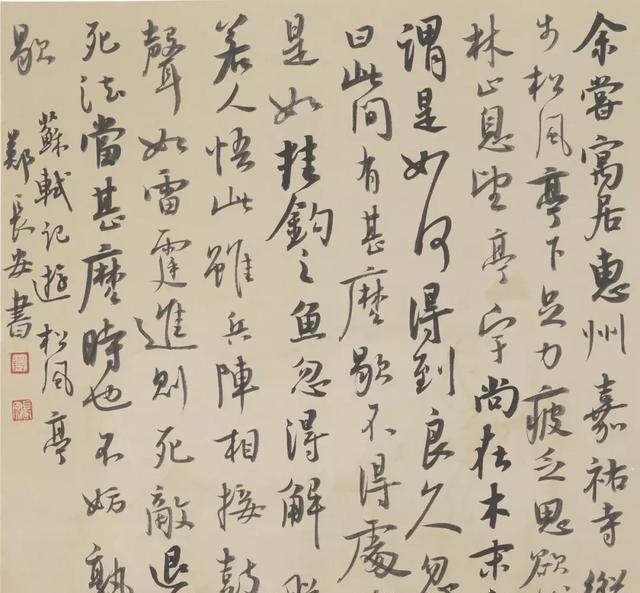 余嘗寓居惠州嘉祐寺縱
步松風亭下足力疲乏思欲
林止息望亭宇尚在木末
謂是如何得到良久忽
曰此間有甚麼歇不得處
是如挂鉤之魚忽得解
若人悟此雖兵陣相接鼓
聲如雷霆進則死敵退
死法當甚麼時也不妨熟
歇
蘇軾記遊松風亭
鄭長安書